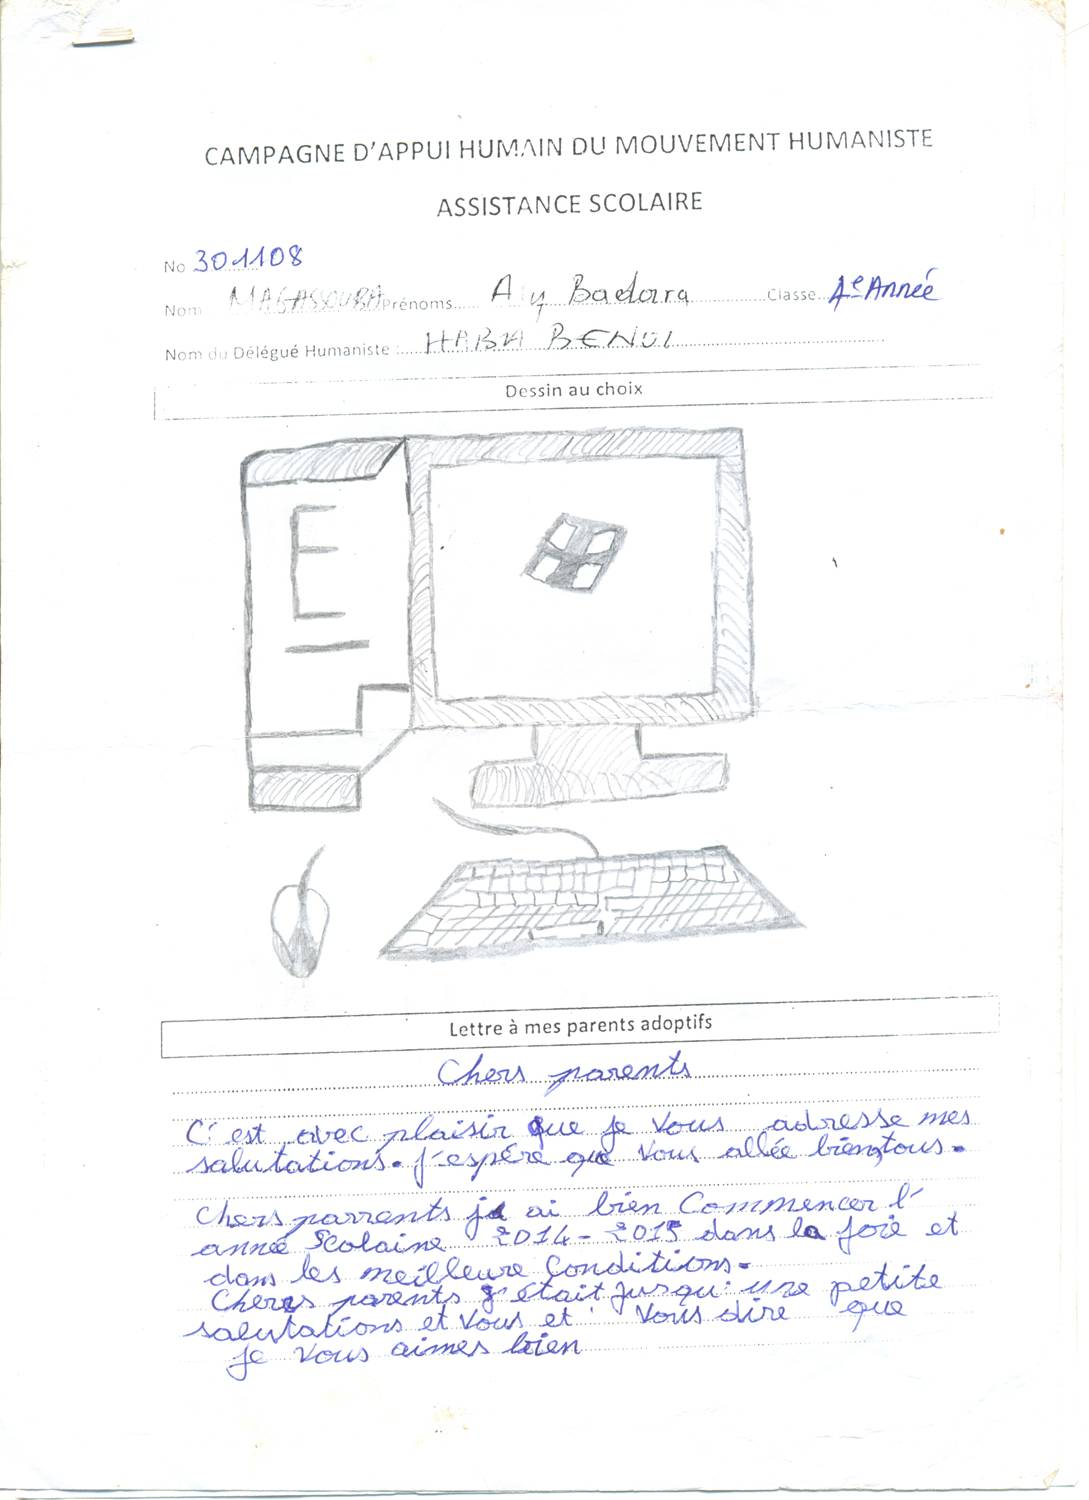 CAMPAGNE D'APPUI HUMAIN DU MOUVEMENT HUMANISTE
ASSISTANCE SCOLAIRE
No 301108
Nom MAGASSOUBA Prénoms..... Aly Badara Classe.. 4e Année
Nom du Délégué Humaniste : HABA BENOI
Dessin au choix
E
Lettre à mes parents adoptifs
Chers parents
C'est avec plaisir que je vous adresse mes
salutations. j'espére que vous allée bien, tous.
Chers parrants j ai bien Commencer l'
année Scolaire 2014-2015 dans la joie et
dans les meilleure Conditions.
Chers parents j'était Jusqu' une petite
salutations et vous et vous dire que
je vous aimes bien